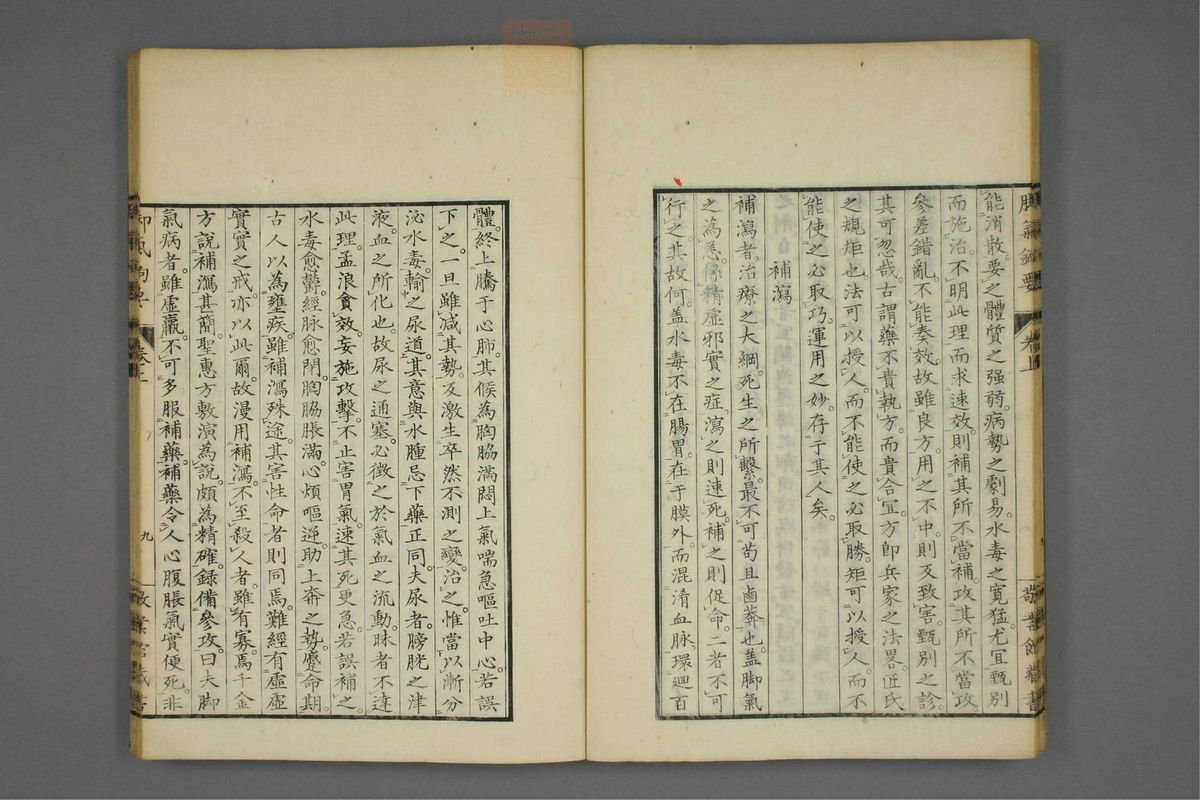 脚氣鈎要
卷上
敬業館藏書
能消散要之體質之强弱病勢之劇易水毒之寬猛尤宜甄別
而施治不明此理而求速效則補其所不當補攻其所不當攻
參差錯亂不能奏效故雖良方用之不中則及致害甄別之診
其可忽哉古謂藥不貴執方而貴合宜方卽兵家之法畧匠氏
之規矩也法可以授人而不能使之必取勝矩可以授人而不
能使之必取巧運用之妙存于其人矣
補瀉
補瀉者治療之大綱死生之所繫最不可苟且鹵莽也蓋脚氣
之為患係精虛邪實之症瀉之則速死補之則促命二者不可
行之其故何蓋水毒不在腸胃在于膜外而混淆血脉環迴百
體終上騰于心肺其候為胸脇滿悶上氣喘急嘔吐中心若誤
下之一旦雖减其勢及激生卒然不測之變治之惟當以漸分
泌水毒輸之尿道其意與水腫忌下藥正同夫尿者膀胱之津
液血之所化也故尿之通塞必徵之於氣血之流動昧者不達
此理孟浪貪效妄施攻擊不止害胃氣速其死更急若誤補之
水毒愈鬱經脉愈閉胸脇脹滿心煩嘔逆助上奔之勢蹙命期
古人以為壅疾雖補瀉殊途其害性命者則同焉難經有虛虛
實實之戒亦以此爾故漫用補瀉不至殺人者雖有寡焉千金
方說補瀉甚簡聖惠方敷演為說頗為精確錄備參攷曰夫脚
氣病者雖虛羸不可多服補藥補藥令人心腹脹氣實便死非
九